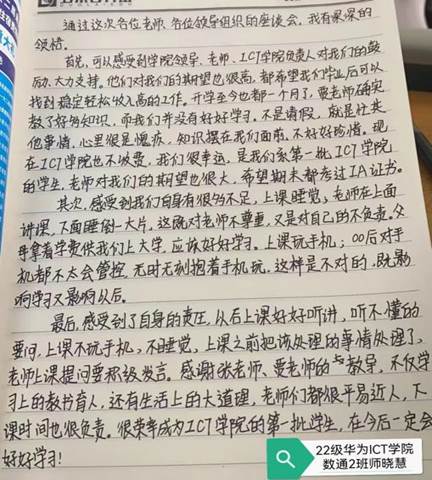 通过这次各位老师、各位领导组织的座谈会，我有深深的
领悟。
首先，可以感受到学院领导、老师、ICT学院负责人对我们的鼓
励、大力支持。他们对我们的期望也很高，都希望我们毕业后可以
找到稳定轻松收入高的工作。开学至今也都一个月了，贾老师确实
教了好多知识，而我们并没有好好学习，不是请假，就是社共
他事情，心里很是愧疚，知识摆在我们面前，不好好珍惜。现
在ICT学院也不收费，我们很幸运，是我们系第一批ICT学院
的学生，老师对我们的期望也很大，希望期末都考过IA证书。
其次，感受到我们自身有很多不足，上课睡觉，老师在上面
讲课，下面睡倒一大片，这既对老师不尊重，又是对自己的不负责，父
母拿着学费供我们上大学，应该好好学习。上课玩手机，00后对手
机都不太会管控，无时无刻抱着手机玩，这样是不对的，既影
响学习又影响以后。
最后，感受到了自身的责任，从后上课好好听讲，听不懂的
要问，上课不玩手机、不睡觉，上课之前把该处理的事情处理了，
老师上课提问要积极发言。感谢张老师、贾老师的教导，不仅学
习上的教书育人，还有生活上的大道理，老师们都很平易近人，下
课时间也很负责。很荣幸成为ICT学院的第一批学生，在今后一定会
好好学习！
22级华为ICT学院
数通2班师晓慧